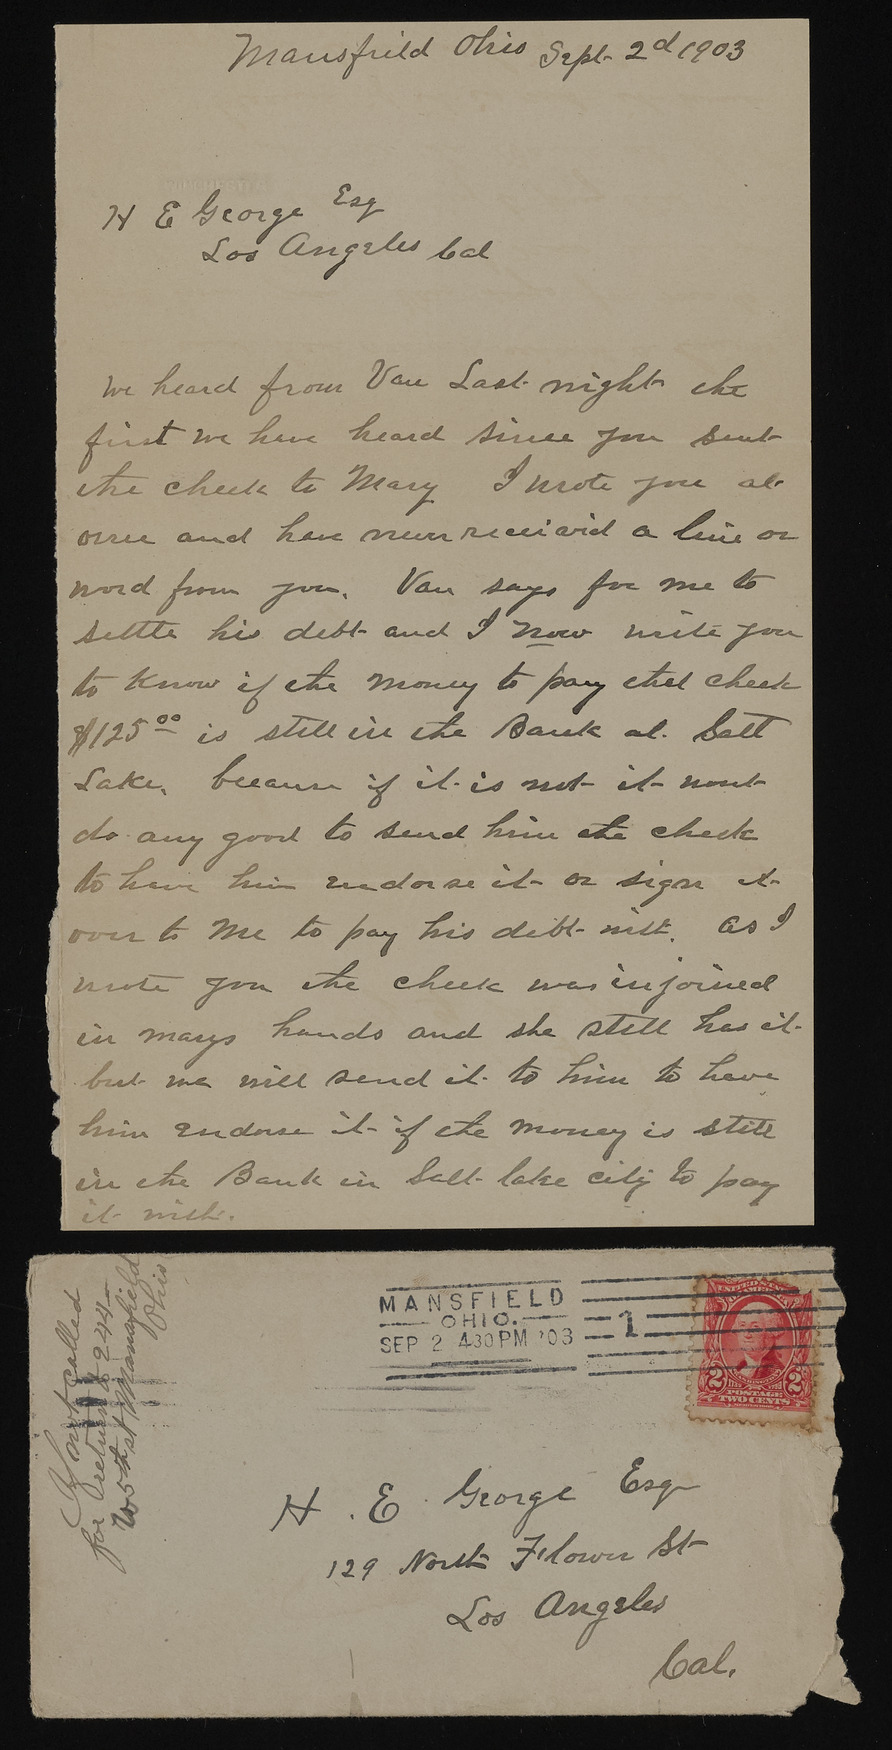 Mansfield Ohio Sept. 2d 1903
H E George Esq
Los Angeles Cal
We heard from Van Last night the
first we have heard since you sent
the check to Mary I wrote you at
once and have never receivid a line or
word from you. Van says for me to
settle his debt and I now write you
to know if the money to pay that check
$125.00 is still in the Bank at Salt
Lake, because if it is not it wont
do any good to send him the check
to have him endorse it or sign it
over to me to pay his debt with. as I
wrote you the check was injoined
in marys hands and she still has it
but we will send it to him to have
him endorse it if the money is still
in the Bank in Salt lake city to pay
it with.
If not called
for return to 244
W 5th st Mansfield
Ohio
MANSFIELD
OHIO.
SEP 2 430PM '03
1
UNITED STATES
OF AMERICA
WASHINGTON
2 2
POSTAGE
TWO CENTS
H. E. George Esq
129 North Flower St
Los Angeles
Cal.